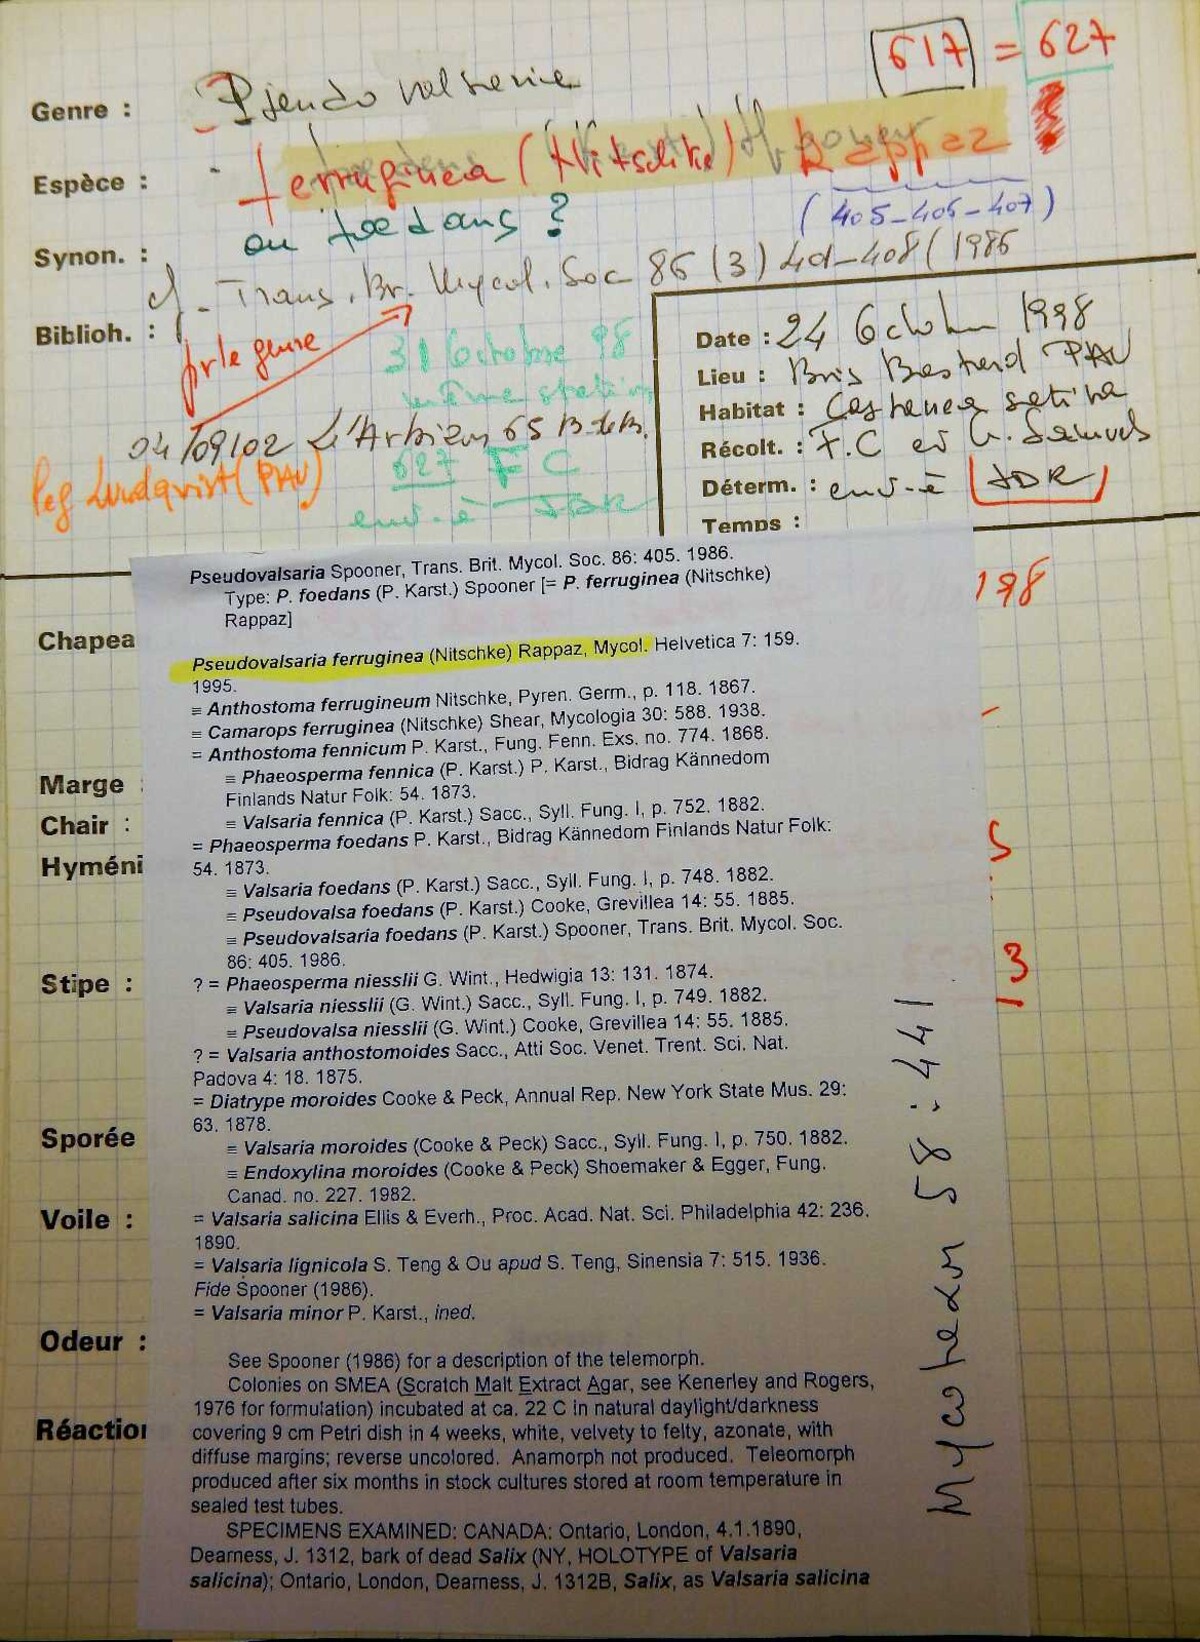 617 = 627
Genre : Pseudovalsaria
Espèce : ferruginea (Nitschke) Rappaz
ou foedans ?
(405-406-407)
Synon. :
cf. Trans. Br. Mycol. Soc 86 (3) 401-408 (1986
Biblioh. :
pr le genre
31 Octobre 98
même station
04/09/02 L'Arbizon 65 B.deB.
leg Lundqvist (PAU)
627 FC
env. à JDR
Date : 24 Octobre 1998
Lieu : Bois Bastard PAU
Habitat : Castanea sativa
Récolt. : F.C et G. Samuels
Déterm. : env. à JDR
Temps :
198
Pseudovalsaria Spooner, Trans. Brit. Mycol. Soc. 86: 405. 1986.
Type: P. foedans (P. Karst.) Spooner [= P. ferruginea (Nitschke)
Rappaz]
Chapea
Pseudovalsaria ferruginea (Nitschke) Rappaz, Mycol. Helvetica 7: 159.
1995.
≡ Anthostoma ferrugineum Nitschke, Pyren. Germ., p. 118. 1867.
≡ Camarops ferruginea (Nitschke) Shear, Mycologia 30: 588. 1938.
= Anthostoma fennicum P. Karst., Fung. Fenn. Exs. no. 774. 1868.
≡ Phaeosperma fennica (P. Karst.) P. Karst., Bidrag Kännedom
Finlands Natur Folk: 54. 1873.
≡ Valsaria fennica (P. Karst.) Sacc., Syll. Fung. I, p. 752. 1882.
= Phaeosperma foedans P. Karst., Bidrag Kännedom Finlands Natur Folk:
54. 1873.
≡ Valsaria foedans (P. Karst.) Sacc., Syll. Fung. I, p. 748. 1882.
≡ Pseudovalsa foedans (P. Karst.) Cooke, Grevillea 14: 55. 1885.
≡ Pseudovalsaria foedans (P. Karst.) Spooner, Trans. Brit. Mycol. Soc.
86: 405. 1986.
? = Phaeosperma niesslii G. Wint., Hedwigia 13: 131. 1874.
≡ Valsaria niesslii (G. Wint.) Sacc., Syll. Fung. I, p. 749. 1882.
≡ Pseudovalsa niesslii (G. Wint.) Cooke, Grevillea 14: 55. 1885.
? = Valsaria anthostomoides Sacc., Atti Soc. Venet. Trent. Sci. Nat.
Padova 4: 18. 1875.
= Diatrype moroides Cooke & Peck, Annual Rep. New York State Mus. 29:
63. 1878.
≡ Valsaria moroides (Cooke & Peck) Sacc., Syll. Fung. I, p. 750. 1882.
≡ Endoxylina moroides (Cooke & Peck) Shoemaker & Egger, Fung.
Canad. no. 227. 1982.
= Valsaria salicina Ellis & Everh., Proc. Acad. Nat. Sci. Philadelphia 42: 236.
1890.
= Valsaria lignicola S. Teng & Ou apud S. Teng, Sinensia 7: 515. 1936.
Fide Spooner (1986).
= Valsaria minor P. Karst., ined.
See Spooner (1986) for a description of the telemorph.
Colonies on SMEA (Scratch Malt Extract Agar, see Kenerley and Rogers,
1976 for formulation) incubated at ca. 22 C in natural daylight/darkness
covering 9 cm Petri dish in 4 weeks, white, velvety to felty, azonate, with
diffuse margins; reverse uncolored. Anamorph not produced. Teleomorph
produced after six months in stock cultures stored at room temperature in
sealed test tubes.
SPECIMENS EXAMINED: CANADA: Ontario, London, 4.1.1890,
Dearness, J. 1312, bark of dead Salix (NY, HOLOTYPE of Valsaria
salicina); Ontario, London, Dearness, J. 1312B, Salix, as Valsaria salicina
Marge :
Chair :
Hyméni
Stipe :
Sporée
Voile :
Odeur :
Réaction
5
13
Mycotaxon 58 : 441